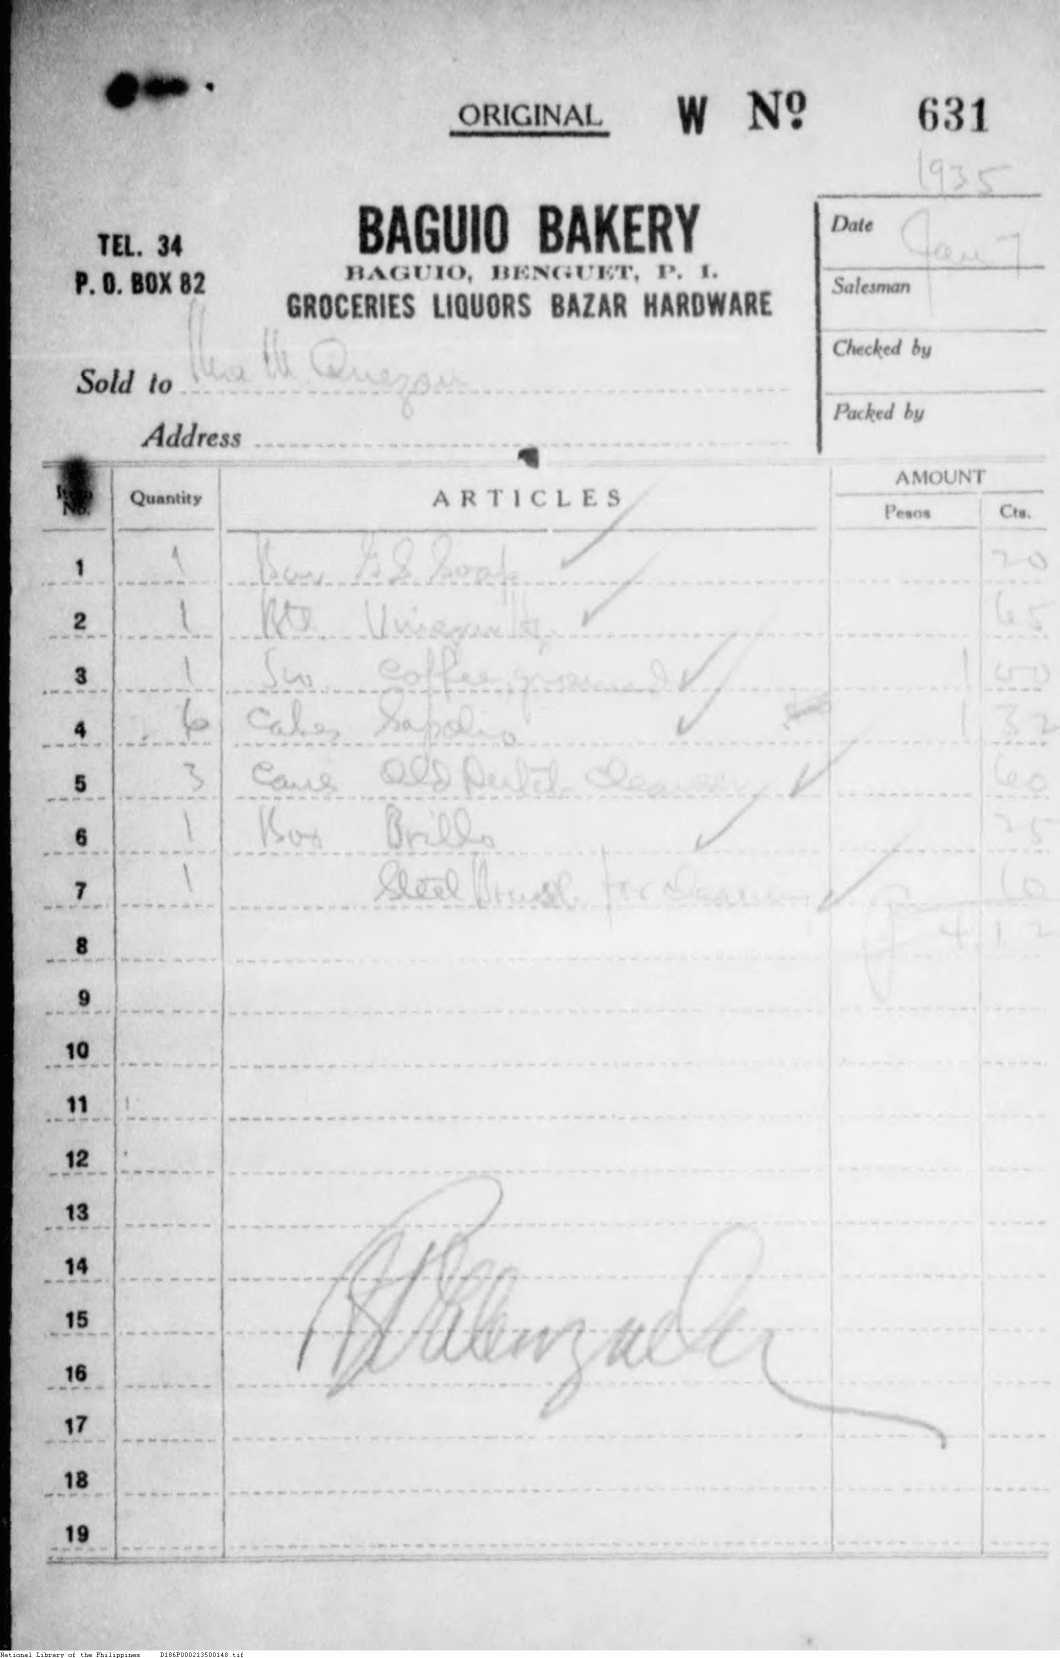 ORIGINAL W Nº 631
1935
TEL. 34
P. O. BOX 82
BAGUIO BAKERY
BAGUIO, BENGUET, P. I.
GROCERIES LIQUORS BAZAR HARDWARE
Date Jan 7
Salesman
Checked by
Packed by
Sold to M. Quezon
Address
No. Quantity ARTICLES AMOUNT
Pesos Cts.
1 1 Bar Soap 20
2 1 Btl. 65
3 1 coffee ground 1 00
4 6 Cakes Sapolio 1 32
5 3 Cans Old Dutch Cleanser 60
6 1 Box Brillo 25
7 1 Steel Brush for 10
8 4 12
9
10
11
12
13
14
15
16
17
18
19
National Library of the Philippines D186P000213500148.tif